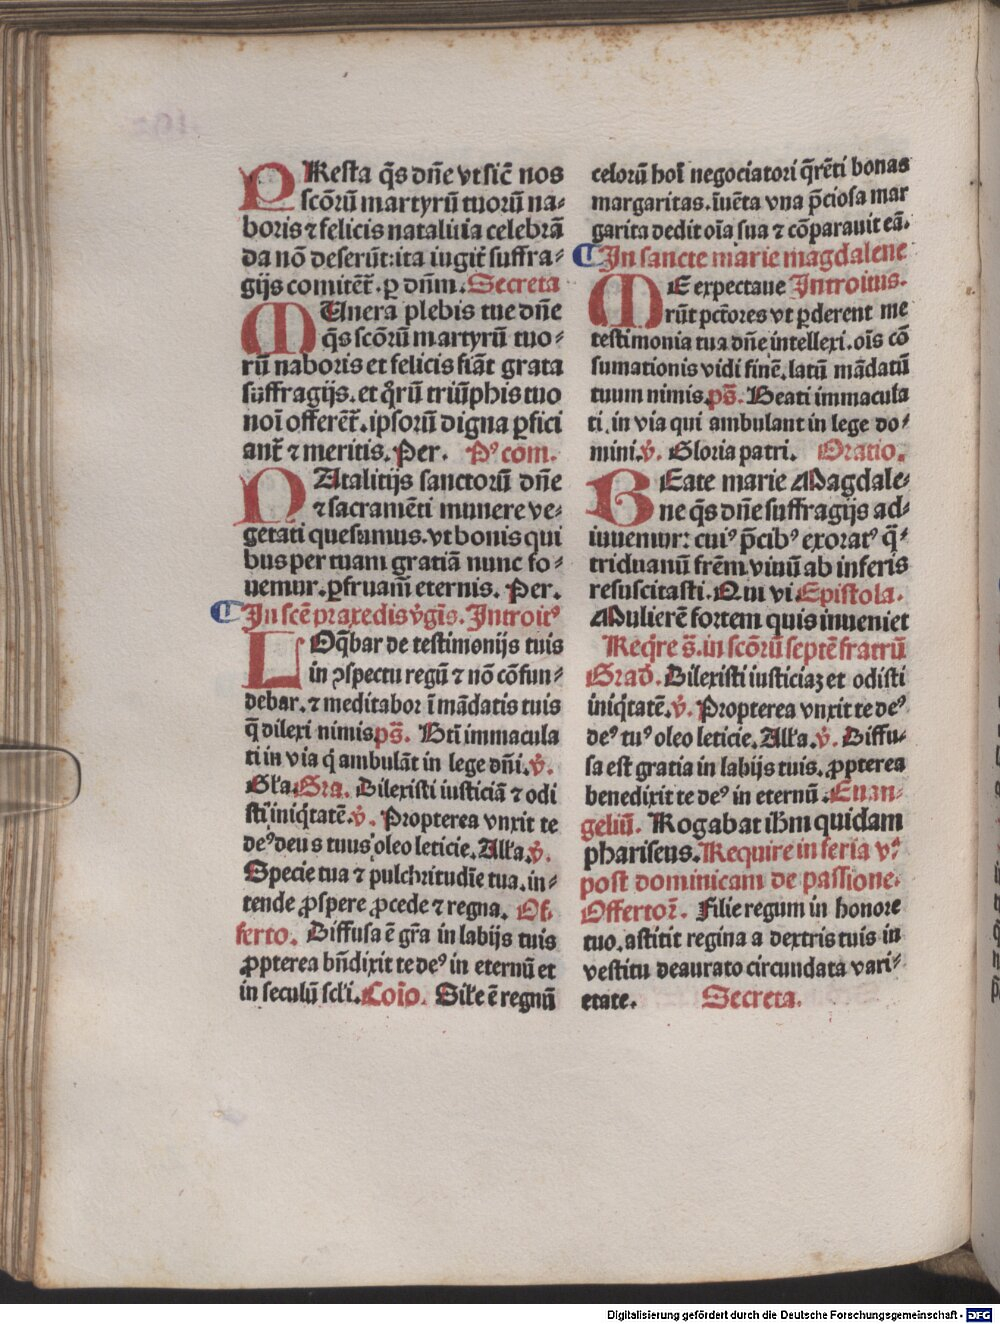 PResta q̄s dn̄e vt sic̄ nos
scōꝝ martyrū tuorū na⸗
boris ⁊ felicis natalitia celebrā
da nō deserūt: ita iugit̄ suffra⸗
gijs comitēt̄. ꝑ dn̄m. Secreta
MUnera plebis tue dn̄e
q̄s scōrū martyrū tuo⸗
rū naboris et felicis fiāt grata
suffragijs. et q̄rū triūphis tuo
noī offerēt̄. ipsorū digna ꝑfici
ant̄ ⁊ meritis. Per. Pꝰ com.
NAtalitijs sanctorū dn̄e
⁊ sacramēti munere ve⸗
getati quesumus. vt bonis qui
bus per tuam gratiā nunc fo⸗
uemur. ꝑfruam̄ eternis. Per.
In scē praxedis v̄gīs. Introitꝰ
LOq̄bar de testimonijs tuis
in ꝯspectu regū ⁊ nō cōfun⸗
debar. ⁊ meditabor ī mādatis tuis
q̄ dilexi nimis ps̄. Btī immacula
ti in via q̄ ambulāt in lege dn̄i. v̄.
Gła. Gra. Dilexisti iusticiā ⁊ odi
sti iniq̄tatē. v̄. Propterea vnxit te
deꝰ deus tuus oleo leticie. Ałła. v̄.
Specie tua ⁊ pulchritudīe tua. in⸗
tende ꝓspere ꝓcede ⁊ regna. Of⸗
ferto. Diffusa ē gr̄a in labijs tuis
ꝓpterea bn̄dixit te deꝰ in eternū et
in seculū scl̄i. Coīo. Sił̄e ē regnū
celorū hoī negociatori q̄rēti bonas
margaritas. īuēta vna p̄ciosa mar
garita dedit oīa sua ⁊ cōparauit eā.
In sancte marie magdalene
ME expectaue Introitus.
rūt pctōres vt ꝑderent me
testimonia tua dn̄e intellexi. oīs cō
sumationis vidi finē. latū mādatū
tuum nimis. ps̄. Beati immacula
ti. in via qui ambulant in lege do⸗
mini. v̄. Gloria patri. Oratio.
BEate marie Magdale⸗
ne q̄s dn̄e suffragijs ad⸗
iuuemur: cuiꝰ p̄cibꝰ exoratꝰ q̄⸗
triduanū frēm viuū ab inferis
resuscitasti. Qui vi Epistola.
Mulierē fortem quis inueniet
Req̄re s̄. in scōrū septē fratrū
Grad̄. Dilexisti iusticiaꝫ et odisti
iniq̄tatē. v̄. Propterea vnxit te deꝰ
deꝰ tuꝰ oleo leticie. Ałła. v̄. Diffu⸗
sa est gratia in labijs tuis. ꝓpterea
benedixit te deꝰ in eternū. Euan⸗
geliū. Rogabat ih̄m quidam
phariseus. Require in feria v.
post dominicam de passione.
Offertor̄. Filie regum in honore
tuo. astitit regina a dextris tuis in
vestitu deaurato circundata vari⸗
etate. Secreta.
Digitalisierung gefördert durch die Deutsche Forschungsgemeinschaft - DFG